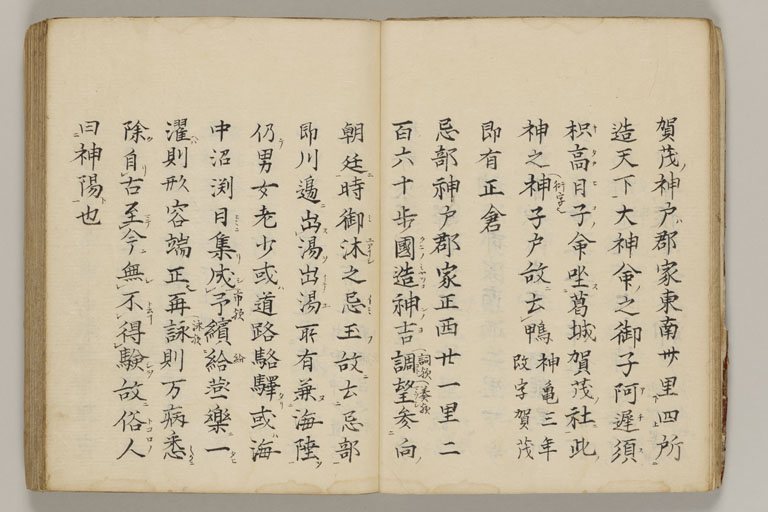 賀茂神戸郡家東南卅里四所
造天下大神命之御子阿遅須
枳高日子命坐葛城賀茂社此
神之神子戸故云鴨神亀三年改字賀茂
即有正倉
忌部神戸郡家正西廿一里二
百六十歩國造神吉調望参向
朝廷時御沐之忌玉故云忌部
即川邊出湯出湯所有兼海陸
仍男女老少或道路駱驛或海
中沼渕日集成予繽給燕樂一
濯則形容端正再詠則万病悉
除自古至今無不得驗故俗人
曰神陽也